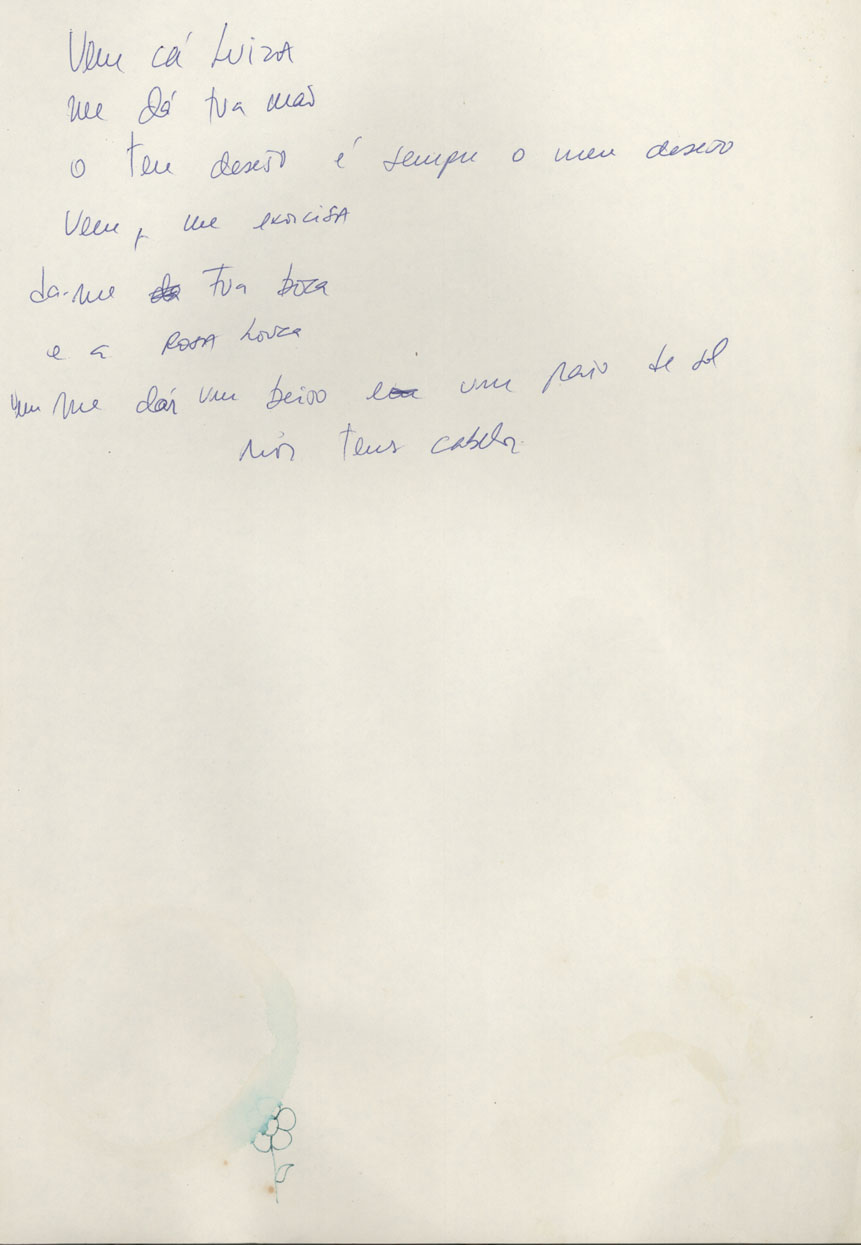 Vem cá Luiza
me dá tua mão
o teu desejo é sempre o meu desejo
Vem, me exorcisa
da-me tua boca
e a ROSA Louca
Vem me dár um beijo um raio de sol
nos teus cabelos